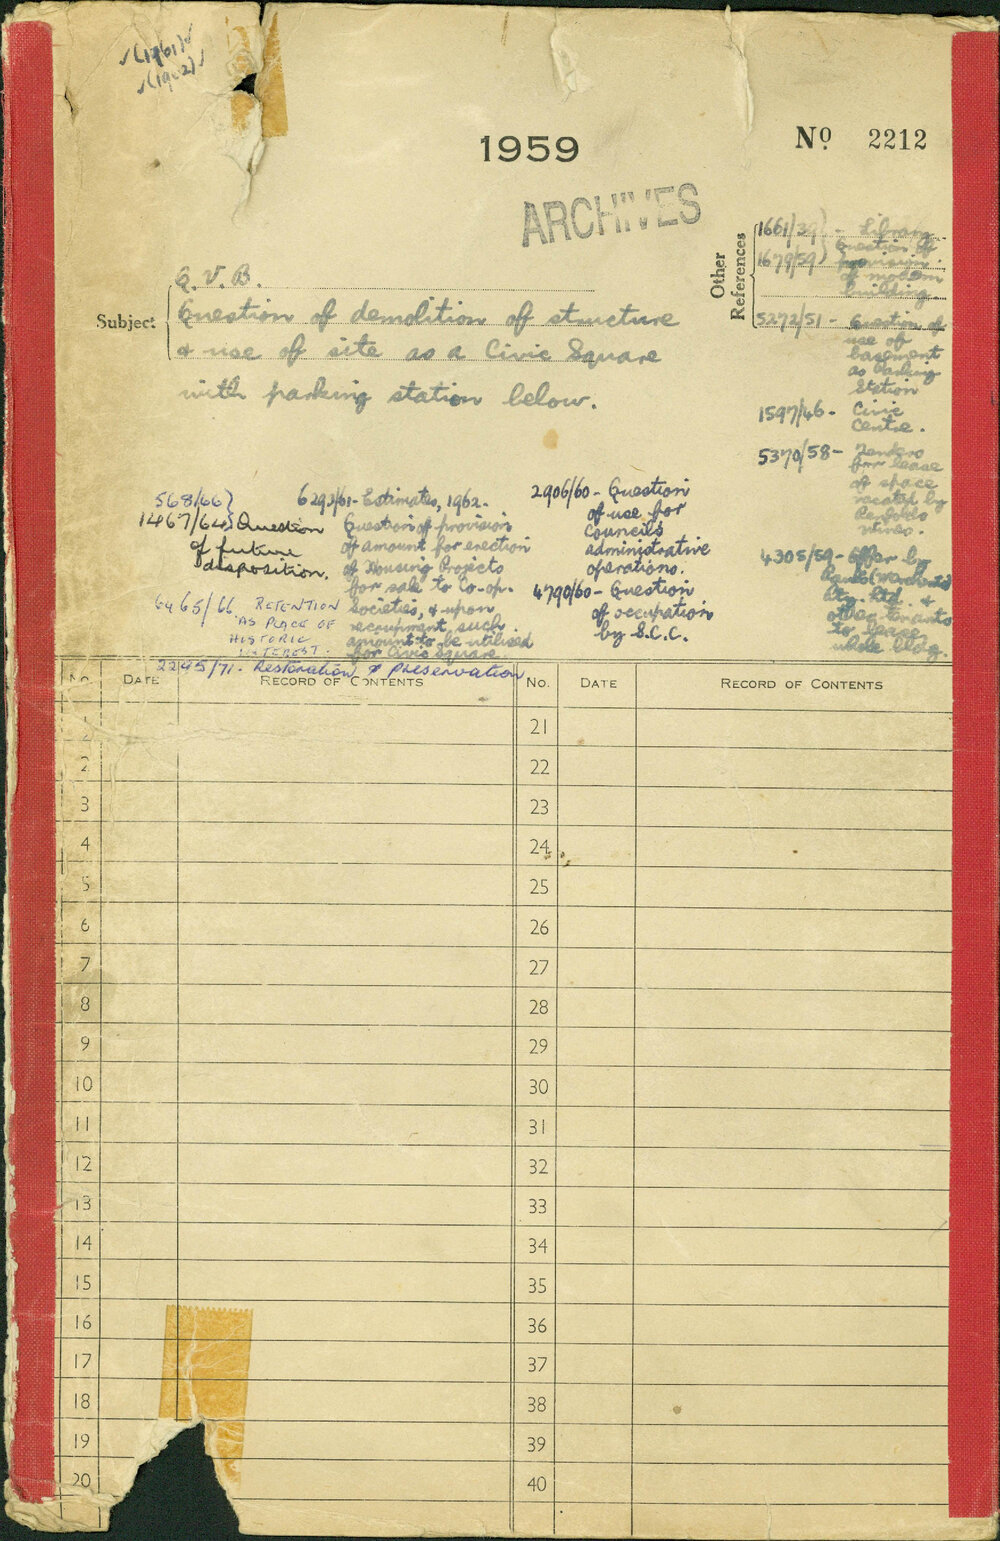 √(1961)√
√(1962)√
1959
No. 2212
ARCHIVES
Other References
1661/39) - Library.
1679/59) Question of
provision
of modern
building.
5272/51 - Question of
use of
basement
as Parking
Station
1597/46 - Civic
Centre.
5370/58 - Tenders
for lease
of space
vacated by
Wines.
4305/59 - Offer by
Pty. Ltd. &
other tenants
to lease
whole bldg.
Subject
Q. V. B.
Question of demolition of structure
& use of site as a Civic Square
with parking station below.
568/66)
1467/64) Question
of future
disposition.
6465/66 RETENTION
AS PLACE OF
HISTORIC
INTEREST.
2295/71. Restoration & Preservation
6293/61 - Estimates, 1962.
Question of provision
of amount for erection
of Housing Projects
for sale to Co-op.
Societies, & upon
recoupment, such
amount to be utilised
for Civic Square.
2906/60 - Question
of use for
Councils
administrative
operations.
4790/60 - Question
of occupation
by S.C.C.
No. DATE RECORD OF CONTENTS No. DATE RECORD OF CONTENTS
1 21
2 22
3 23
4 24
5 25
6 26
7 27
8 28
9 29
10 30
11 31
12 32
13 33
14 34
15 35
16 36
17 37
18 38
19 39
20 40